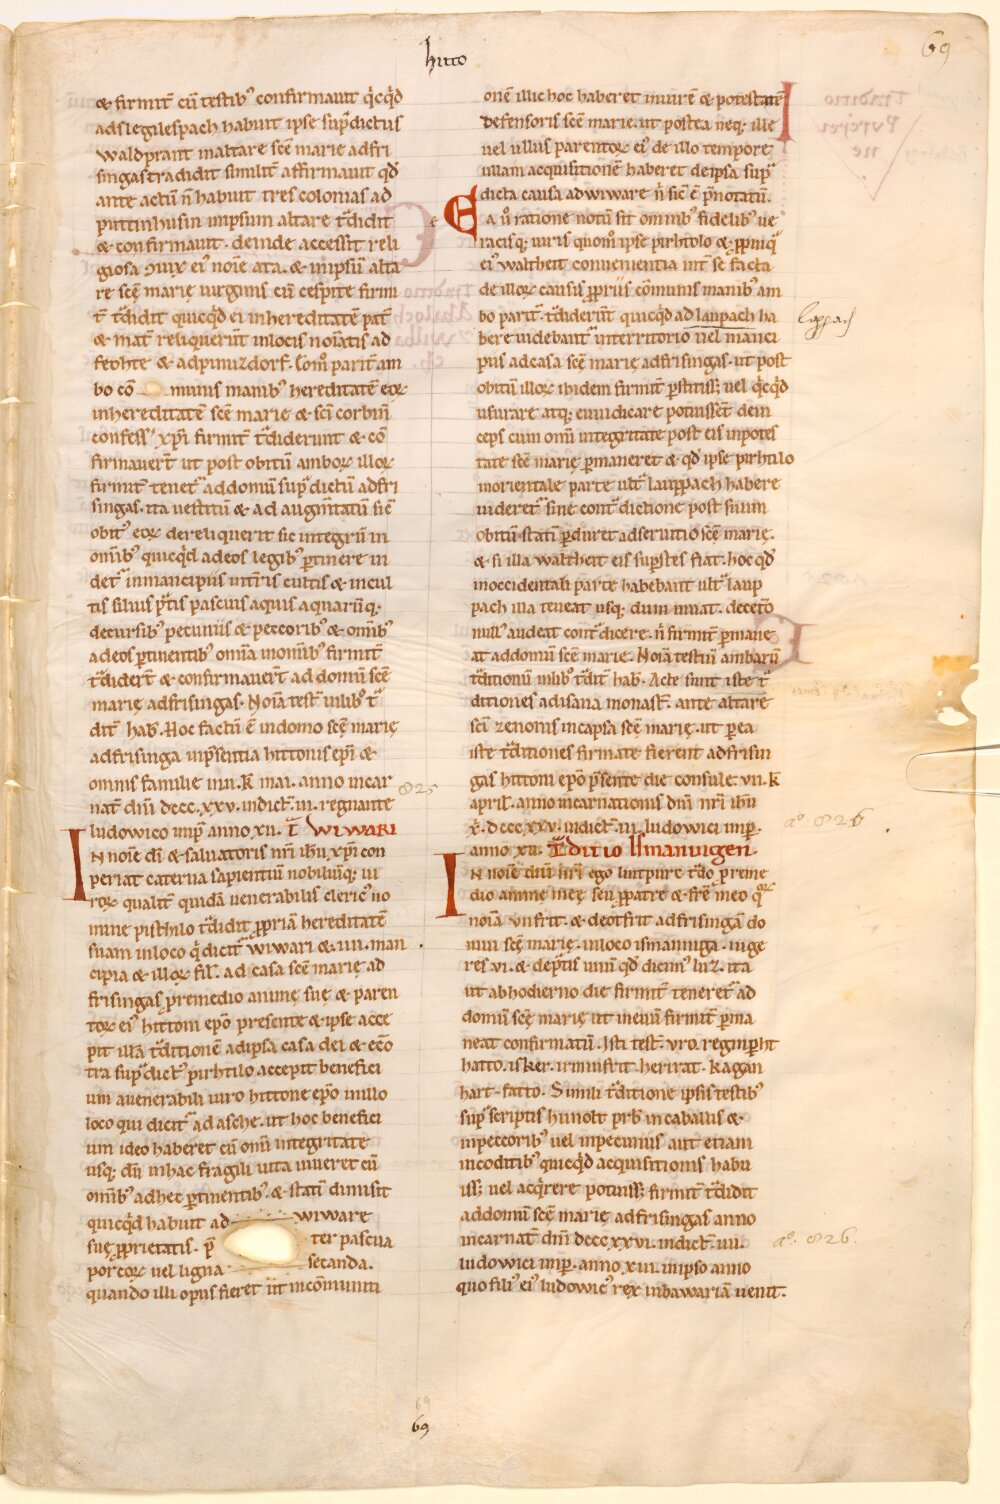 hitto
69
& firmit̄ cū testib᷒ confirmauit q̇cq̇d
adslegilespach habuit ipse sup̄dictus
waldprant inaltare scē marie adfri
singas tradidit similit̄ affirmauit qd̄
ante actū n̄ habuit tres colonias ad
puttinhusin inipsum altare t̄didit
& confirmauit. deinde accessit reli
giosa ꝯiux ei᷒ noīe ata. & inipsū alta
re scē marię uirginis cū cespite firmi
t̄ t̄didit quicq̇d ei inhereditatē pat̄
& mat̄ reliquerūt inlocis noīatis ad
feohte & adpiniuzdorf. Com̊ parit̄ am
bo cō munis manib᷒ hereditatē eoꝝ
inhereditatē scē marie & scī corbinī
confess᷒ xp̄i firmit̄ t̄diderunt & cō
firmauer̄t ut post obitū amboꝝ illoꝝ
firmit̄ tenet᷑ addomū sup̄dictū adfri
singas. ita uestitū & ad augm̄tatū sic̄
obit᷒ eoꝝ dereliquerit sic integrū in
omīb᷒ quicq̇d adeos legib᷒ ꝑtinere ui
det᷑ inmancipiis int̄ris cultis & incul
tis siluis p̄tis pascuis aquis aquarūq;
decursib᷒ pecuniis & peccorib᷒ & omīb᷒
adeos ꝑtinentib᷒ omīa inomīb᷒ firmit̄
t̄dider̄t & confirmauer̄t ad domū scē
marię adfrisingas. Noīa test̄ inlib᷒ t᷑
dit᷑ hab᷑. Hoc factū ē indomo scē marię
adfrisinga inp̄sentia hittonis ep̄i &
omnis familie iiii. k̄ mai. anno incar
nat̄ dnī dccc. xxv. indict̄. iii. regnante
ludowico imp̄ anno xii. T᷑ WIWARI
825
IN noīe dī & saluatoris nr̄i ihū xp̄i con
periat caterua sapientiū nobiliūq; ui
roꝝ qualit̄ quidā uenerabilis cleric᷒ no
mine pirhtilo t̄didit ꝓpriā hereditatē
suam inloco q̇ dicit᷑ wiwari & iiii. man
cipia & illoꝝ fil̄. ad casa scē marię ad
frisingas ꝓremedio animę suę & paren
toꝝ ei᷒ hittoni ep̄o presente & ipse acce
pit illā t̄ditionē adipsa casa dei & ecc̄o
tra sup̄dict᷒ pirhtilo accepit benefici
um auenerabili uiro hittone ep̄o inillo
loco qui dicit᷑ ad asche. ut hoc benefici
um ideo haberet cū omī integritate
usq; dū inhac fragili uita uiueret cū
omīb᷒ adhęc ꝑtinentib᷒. & statī dimisit
quicq̇d habuit ad wiware
suę ꝓprietatis. p̄ ter pascua
porcoꝝ uel ligna secanda.
quando illi opus fieret ut incōmuni
onē illic hoc haberet iniurē & potestatē
defensoris scē marie. ut postea neq; ille
uel ullus parentoꝝ ei᷒ de illo tempore
ullam acquisitionē haberet deipsa sup᷑
dicta causa adwiware n̄ sic ē p̄notatū.
Ea u̇ ratione notū sit omnib᷒ fidelib᷒ ue
racisq; uiris quom̊ ipse pirhtolo & ꝓpinq᷑
ei᷒ waltheit conuenientia int̄ se facta
de illoꝝ causis ꝓpriis cōmunis manib᷒ am
bo parit̄. t̄diderūt quicq̇d ad laupach ha
bere uidebant᷑ interritorio uel manci
piis adcasa scē marię adfrisingas. ut post
obitū illoꝝ ibidem firmit̄ ꝑstitiss; uel q̇cq̇d
usurare atq; eiuidicare potuissēt dein
ceps cum omī integritate post eis inpotes
tate scē marię ꝑmaneret & qd̄ ipse pirhtilo
inorientale parte ult᷑ lauppach habere
uideret᷑ sine cont᷑dictione post suum
obitū statī ꝑduret adseruitio scē marię.
& si illa waltheit eis supstes fiat. hoc qd̄
inoccidentali parte habebant ult᷑ laup
pach illa teneat usq; dum uiuat. decet̄o
null᷒ audeat cont᷑dicere. n̄ firmit̄ ꝑmane
at addomū scē marie. Noīa testiū ambarū
t̄ditionū inlib᷒ t̄dit̄ hab᷑. Acte sunt iste t᷑
ditiones adisana monast̄. ante altare
scī zenonis incapsa scē marię. ut ꝑea
iste t̄ditiones firmate fierent adfrisin
gas hittoni ep̄o p̄sente die consule. vii. k̄
april̄. anno incarnationis dnī nr̄i ihū
x̄. dccc xxv. indict̄. iii. ludowici imp̄.
anno xii. T᷑ditio Ismanuigen.
IN noīe dnī nr̄i ego liutpure t̄do ꝓreme
dio animę meę seu ꝓpatre & fr̄e meo q̊ꝝ
noīa unfrit. & deotfrit adfrisingā do
mui scē marię. inloco ismaninga. iuge
res vi. & dep̄tis unū qd̄ dicim᷒ luz. ita
ut abhodierno die firmit̄ teneret᷑ ad
domū scē marię ut ineuū firmit̄ ꝑma
neat confirmatū. Isti test̄. vro. reginpht
hatto. isker. irminfrit herirat. kagan
hart. fatto. Simili t̄ditione ipsis testib᷒
sup̄scriptis hunolt prb̄ incaballis &
inpeccorib᷒ uel inpecuniis aut etiam
incoditib᷒ quicq̇d acquisitionis habu
iss; uel acq̇rere potuiss; firmit̄ t̄didit
addomū scē marię adfrisingas anno
incarnat̄ dnī dccc xxvi. indict̄. iiii.
ludowici imp̄. anno xiii. inipso anno
quo fili᷒ ei᷒ ludowic᷒ rex inbawariā uenit.
Lappach
aº. 826
aº. 826.
69
69